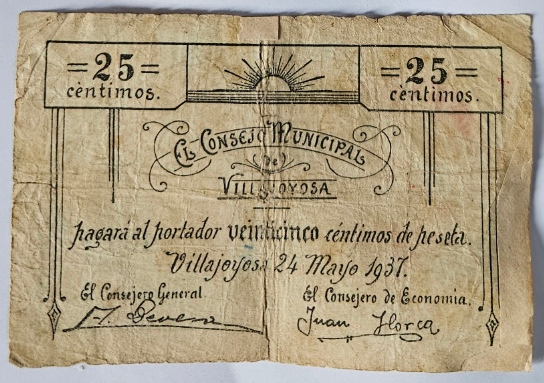 =25=
céntimos.
=25=
céntimos.
EL CONSEJO MUNICIPAL
de
VILLAJOYOSA
pagará al portador veinticinco céntimos de peseta.
Villajoyosa 24 Mayo 1937.
El Consejero General
El Consejero de Economia.
Juan Llorca